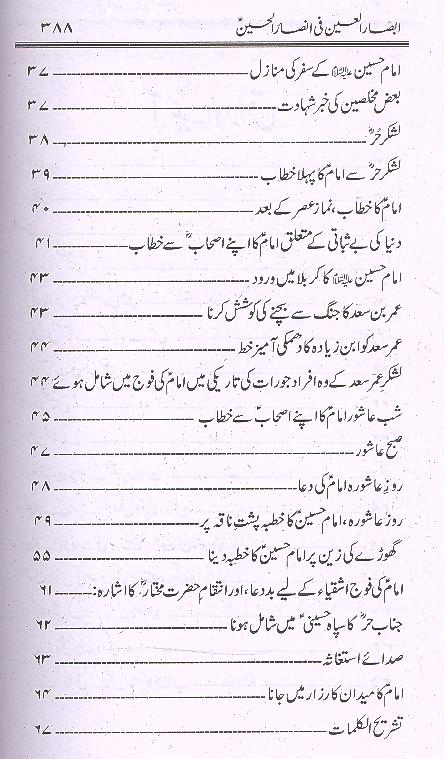 ابصار العین فی انصار الحسینؑ ۳۸۸
امام حسین علیہ السلام کے سفر کی منازل ۳۷
بعض مخلصین کی خبر شہادت ۳۷
لشکر حُرؒ ۳۸
لشکر حُرؒ سے امامؑ کا پہلا خطاب ۳۹
امامؑ کا خطاب، نماز عصر کے بعد ۴۰
دنیا کی بے ثباتی کے متعلق امامؑ کا اپنے اصحابؓ سے خطاب ۴۱
امام حسین علیہ السلام کا کربلا میں ورود ۴۳
عمر بن سعد کا جنگ سے بچنے کی کوشش کرنا ۴۳
عمر سعد کو ابن زیادہ کا دھمکی آمیز خط ۴۴
لشکرِ عمر سعد کے وہ افراد جو رات کی تاریکی میں امامؑ کی فوج میں شامل ہوئے ۴۴
شب عاشور امامؑ کا اپنے اصحابؑ سے خطاب ۴۵
صبح عاشور ۴۷
روزِ عاشورہ امامؑ کی دعا ۴۸
روز عاشورہ، امام حسینؑ کا خطبہ پشتِ ناقہ پر ۴۹
گھوڑے کی زین پر امام حسینؑ کا خطبہ دینا ۵۵
امامؑ کی فوج اشقیاء کے لیے بددعا، اور انتقامِ حضرت مختارؒ کا اشارہ: ۶۱
جناب حُرؒ کا سپاہ حسینیؑ میں شامل ہونا ۶۲
صدائے استغاثہ ۶۳
امامؑ کا میدان کارزار میں جانا ۶۴
تشریح الکلمات ۶۷